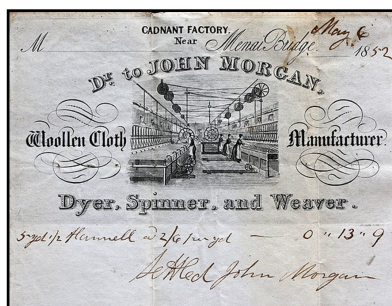 CADNANT FACTORY,
Near Menai Bridge, May 6
M 1852
Dr. to JOHN MORGAN,
Woollen Cloth Manufacturer.
Dyer, Spinner, and Weaver.
5 yd 1/2 Flannell @ 2/6 per yd — 0 " 13 " 9
Settled John Morgan